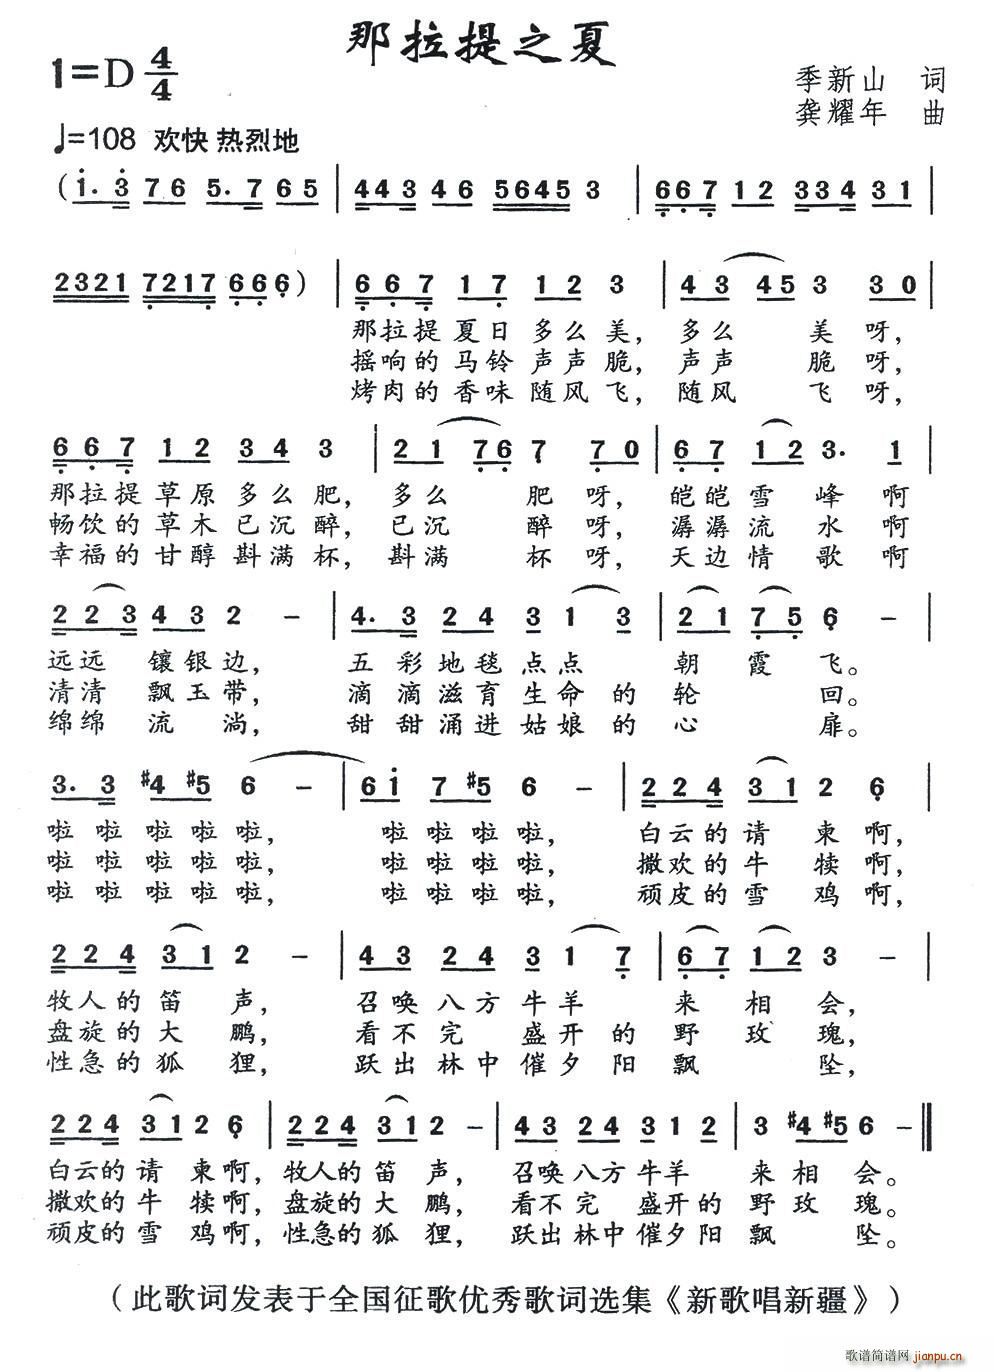 那拉提之夏
1=D 4/4
季新山 词
龚耀年 曲
♩=108 欢快 热烈地
(1. 3 7 6 5. 7 6 5 | 4 4 3 4 6 5 6 4 5 3 | 6 6 7 1 2 3 3 4 3 1 |
2 3 2 1 7 2 1 7 6 6 6) | 6 6 7 1 7 1 2 3 | 4 3 4 5 3 3 0 |
那拉提夏日多么美，多么 美呀，
摇响的马铃声声脆，声声 脆呀，
烤肉的香味随风飞，随风 飞呀，
6 6 7 1 2 3 4 3 | 2 1 7 6 7 7 0 | 6 7 1 2 3. 1 |
那拉提草原多么肥，多么 肥呀，皑皑雪峰啊
畅饮的草木已沉醉，已沉 醉呀，潺潺流水啊
幸福的甘醇斟满杯，斟满 杯呀，天边情歌啊
2 2 3 4 3 2 - | 4. 3 2 4 3 1 3 | 2 1 7 5 6 - |
远远 镶银边，五彩地毯点点 朝霞飞。
清清 飘玉带，滴滴滋育生命的轮 回。
绵绵 流淌，甜甜涌进姑娘的心 扉。
3. 3 #4 #5 6 - | 6 1 7 #5 6 - | 2 2 4 3 1 2 6 |
啦啦啦啦啦，啦啦啦啦，白云的请柬啊，
啦啦啦啦啦，啦啦啦啦，撒欢的牛犊啊，
啦啦啦啦啦，啦啦啦啦，顽皮的雪鸡啊，
2 2 4 3 1 2 - | 4 3 2 4 3 1 7 | 6 7 1 2 3 - |
牧人的笛声，召唤八方牛羊 来相会，
盘旋的大鹏，看不完盛开的野玫瑰，
性急的狐狸，跃出林中催夕阳飘 坠，
2 2 4 3 1 2 6 | 2 2 4 3 1 2 - | 4 3 2 4 3 1 2 | 3 #4 #5 6 - ‖
白云的请柬啊，牧人的笛声，召唤八方牛羊 来相会。
撒欢的牛犊啊，盘旋的大鹏，看不完盛开的野玫瑰。
顽皮的雪鸡啊，性急的狐狸，跃出林中催夕阳飘 坠。
（此歌词发表于全国征歌优秀歌词选集《新歌唱新疆》）
歌谱简谱网
jianpu.cn